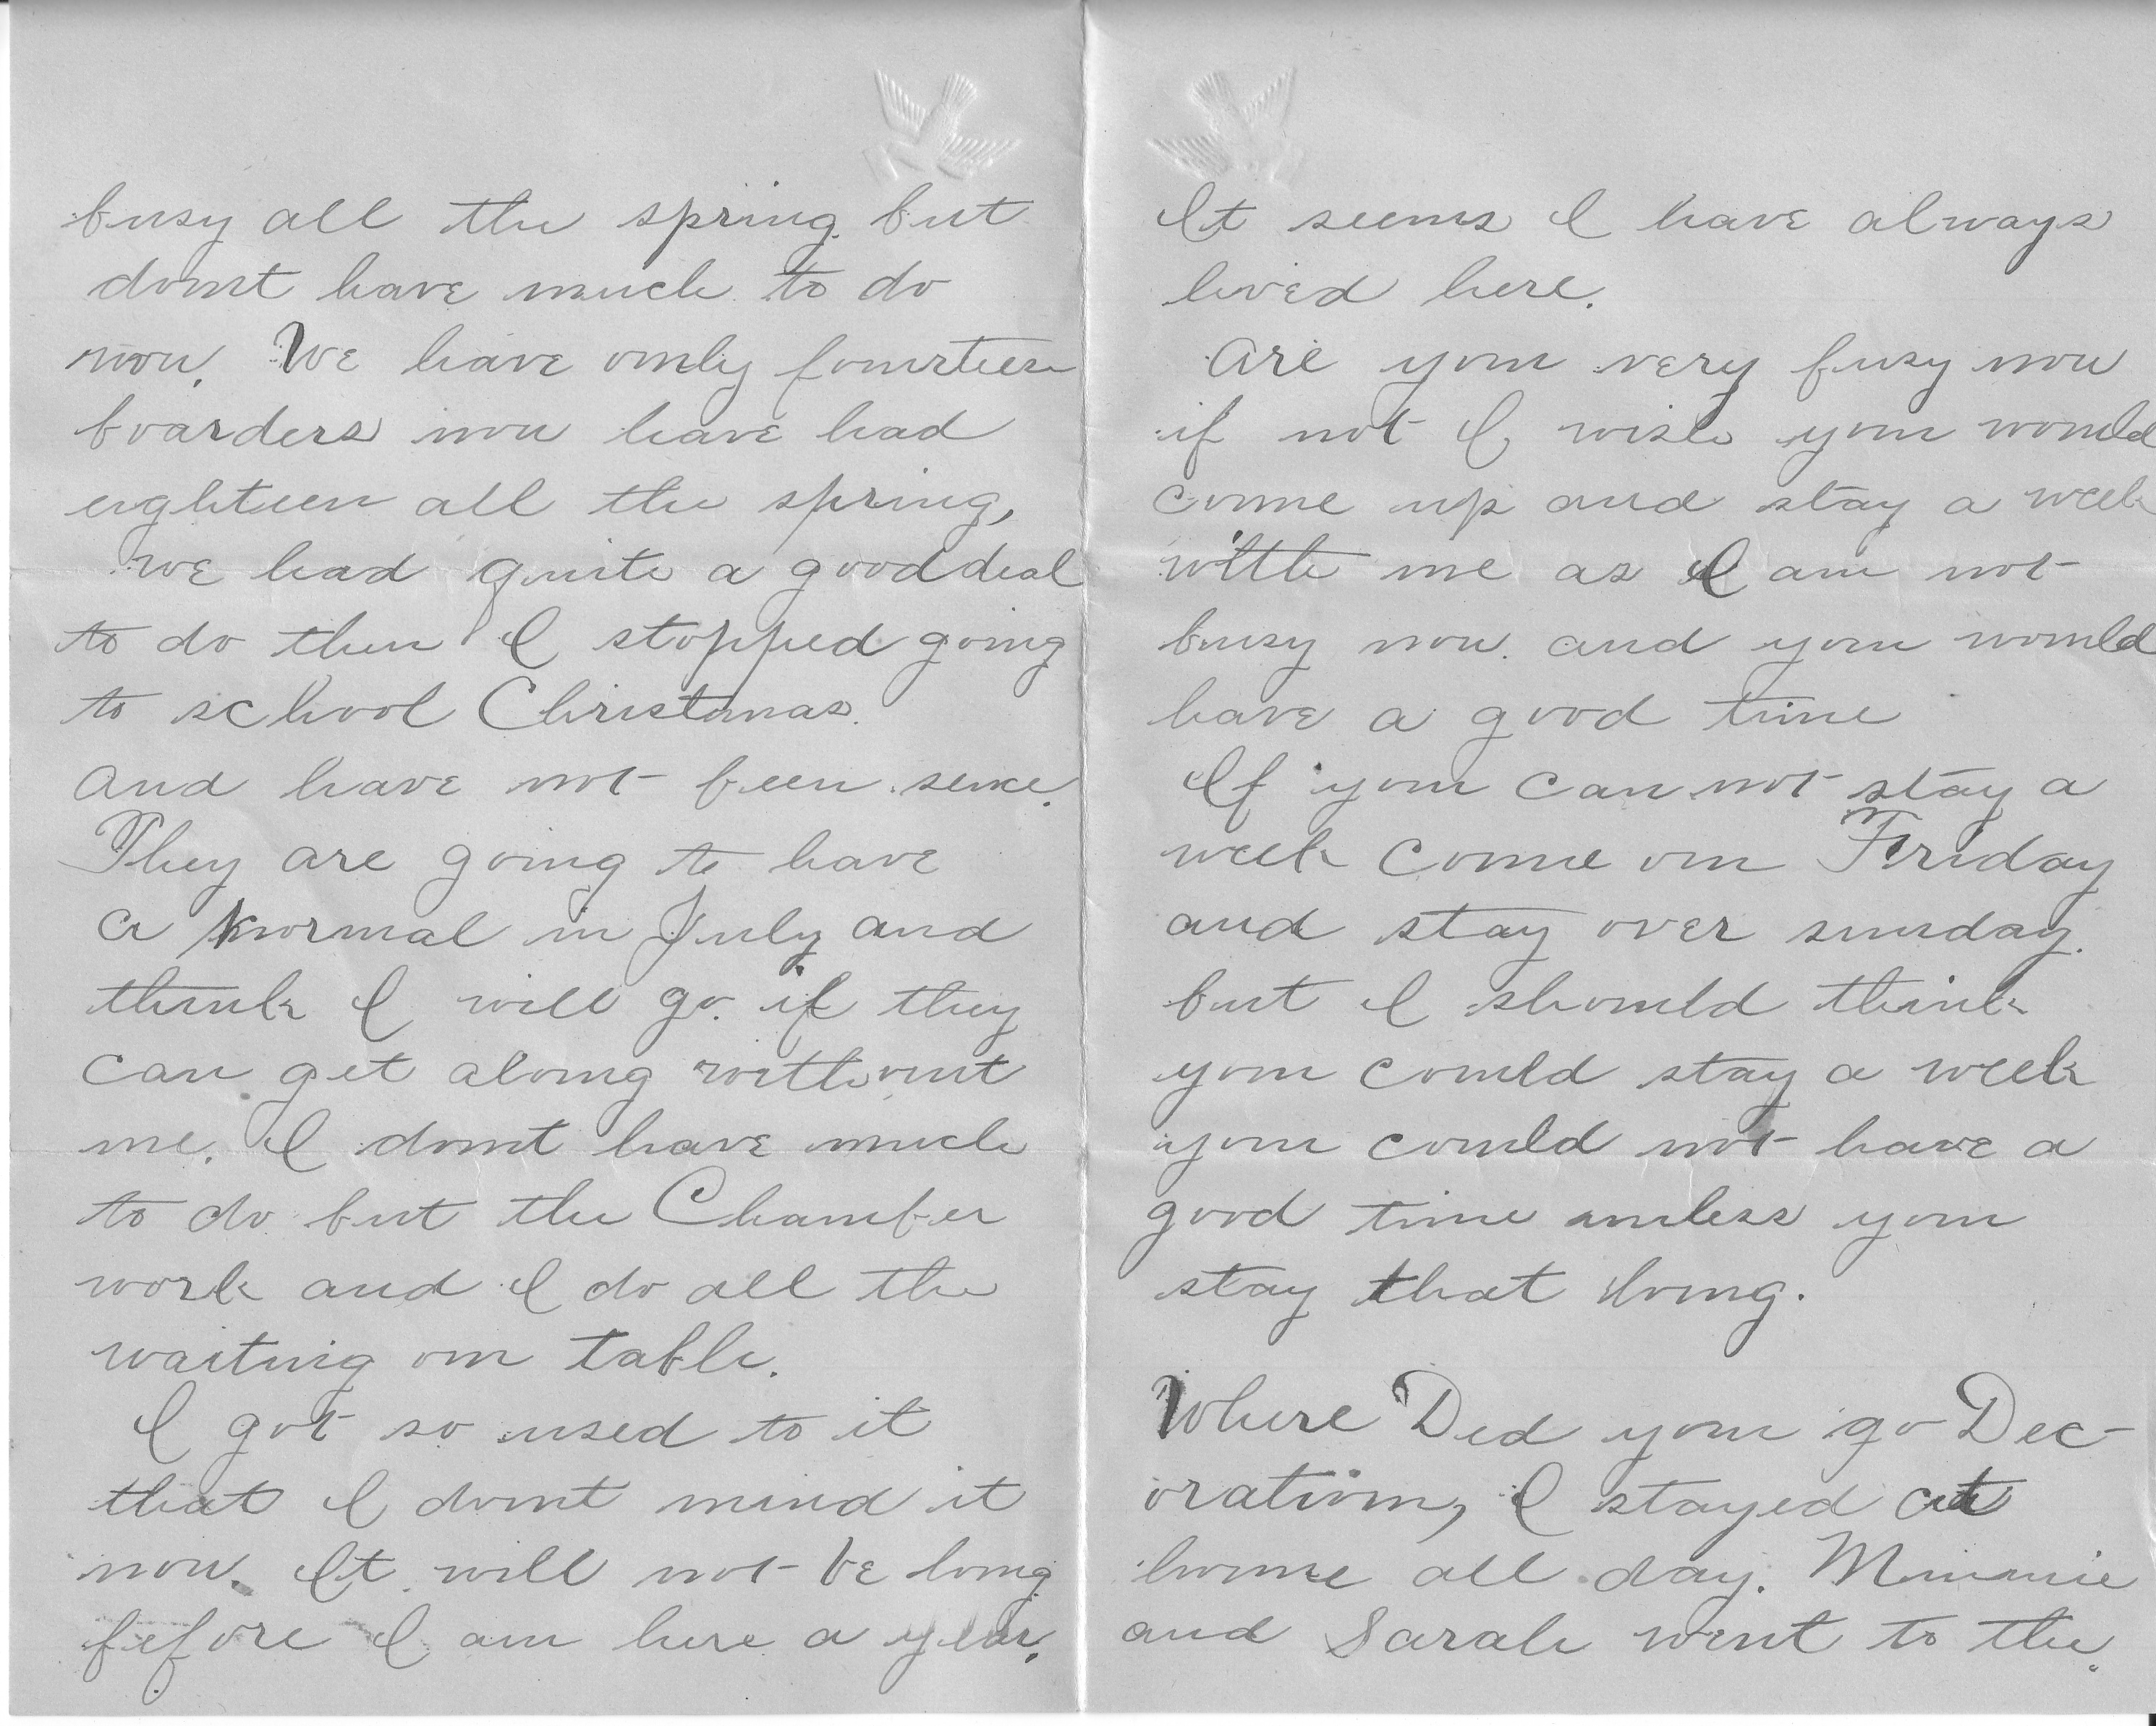 busy all the spring but
dont have much to do
now. We have only fourteen
boarders now have had
eighteen all the spring,
we had quite a good deal
to do then I stopped going
to school Christmas.
and have not been sence.
They are going to have
a normal in July and
think I will go. if they
can get along without
me. I dont have much
to do but the Chamber
work and I do all the
waiting on table.
I got so used to it
that I dont mind it
now. It will not be long
before I am here a year.
It seems I have always
lived here.
are you very busy now
if not I wish you would
come up and stay a week
with me as I am not
busy now. and you would
have a good time
If you can not stay a
week come on Friday
and stay over sunday.
but I should think
you could stay a week
you could not have a
good time unless you
stay that long.
Where Ded you go Dec-
oration, I stayed at
home all day. Minnie
and Sarah went to the